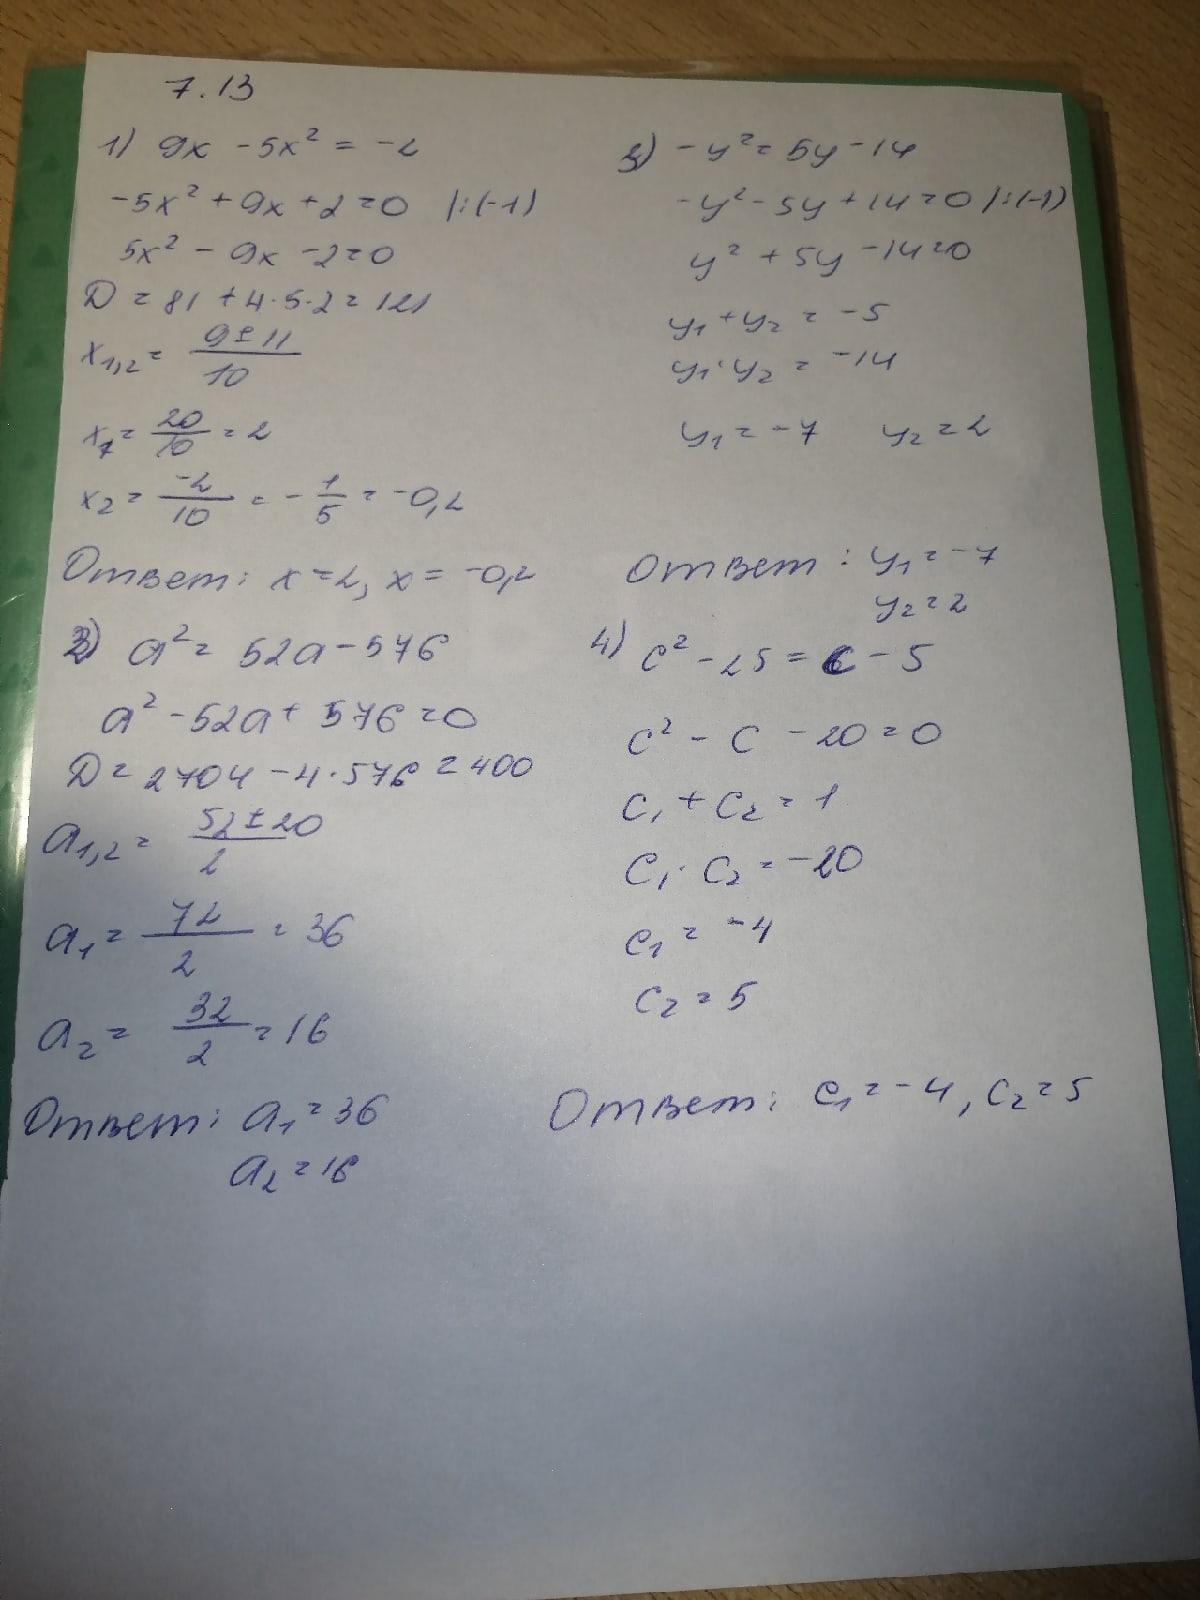 7.13
1) 9x - 5x² = -2
-5x² + 9x + 2 = 0 |:(-1)
5x² - 9x - 2 = 0
D = 81 + 4·5·2 = 121
x₁,₂ = (9 ± 11)/10
x₁ = 20/10 = 2
x₂ = -2/10 = -1/5 = -0,2
Ответ: x = 2, x = -0,2
2) a² = 52a - 576
a² - 52a + 576 = 0
D = 2704 - 4·576 = 400
a₁,₂ = (52 ± 20)/2
a₁ = 72/2 = 36
a₂ = 32/2 = 16
Ответ: a₁ = 36
a₂ = 16
3) -y² = 5y - 14
-y² - 5y + 14 = 0 |:(-1)
y² + 5y - 14 = 0
y₁ + y₂ = -5
y₁ · y₂ = -14
y₁ = -7 y₂ = 2
Ответ: y₁ = -7
y₂ = 2
4) c² - 25 = c - 5
c² - c - 20 = 0
c₁ + c₂ = 1
c₁ · c₂ = -20
c₁ = -4
c₂ = 5
Ответ: c₁ = -4, c₂ = 5